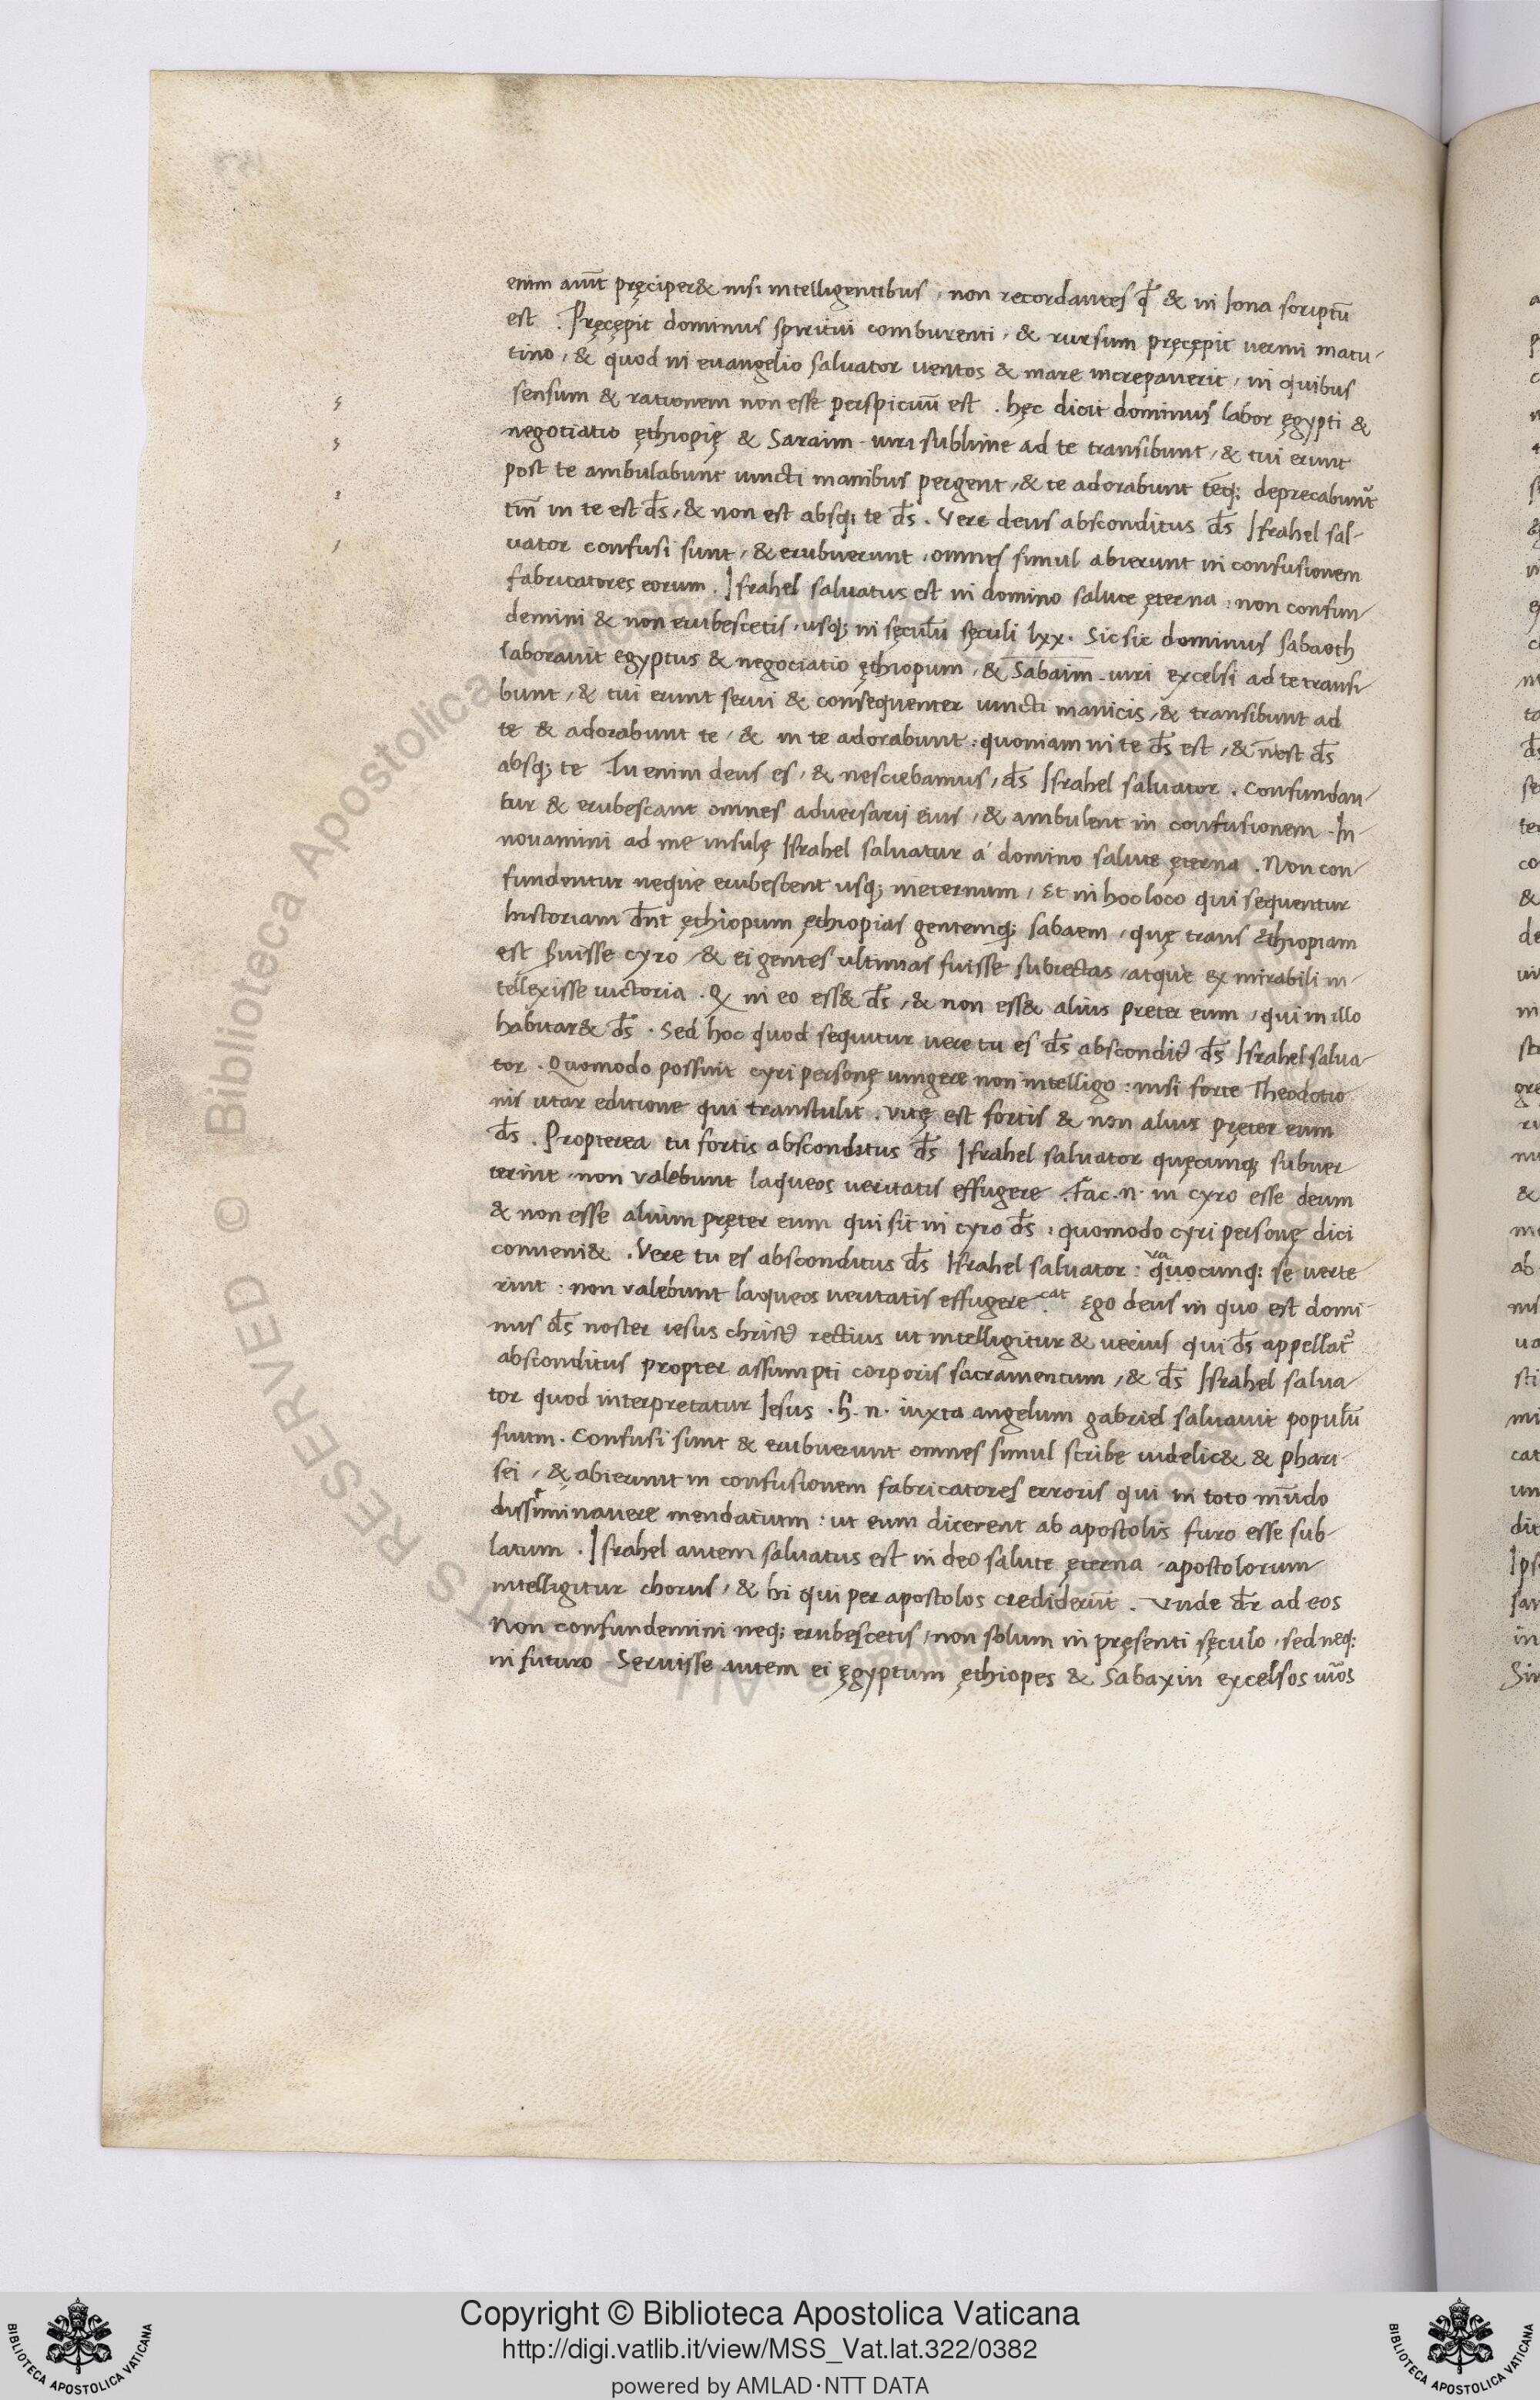 enim aiūt pręciper& nisi intelligentibus, non recordantes qđ & in Iona scriptū
est. Pręcępit dominus spiritui comburenti, & rursum pręcępit vermi matu-
tino, & quod in euangelio saluator uentos & mare increpauerit, in quibus
sensum & rationem non esse perspicuū est. hęc dicit dominus labor ęgypti &
negotiatio ęthiopię & Saraim. uiri sublime ad te transibunt, & tui erunt
post te ambulabunt uincti manibus pergent, & te adorabunt teq; deprecabunt̃
tm̄ in te est d̄s, & non est absq; te d̄s. Vere deus absconditus d̄s Israhel sal-
uator confusi sunt, & erubuerunt, omnes simul abierunt in confusionem
fabricatores eorum. Israhel saluatus est in domino salute ęterna: non confun-
demini & non erubescetis, usq; in sęculū sęculi lxx. Sic sic dominus sabaoth
laborauit egyptus & negociatio ęthiopum, & Sabaim. uiri excelsi ad te transi-
bunt, & tui erunt serui & consequenter uincti manicis, & transibunt ad
te & adorabunt te, & in te adorabunt: quoniam in te d̄s est, & n̄ est d̄s
absq; te Tu enim deus es, & nesciebamus, d̄s Israhel saluator. Confundan-
tur & erubescant omnes aduersarij eius, & ambulent in confusionem. In-
nouamini ad me insulę Israhel saluatur a domino salute ęterna. Non con-
fundentur neque erubescent usq; in eternum, Et in hoc loco qui sequentur
historiam d̄nt ęthiopum ęthiopias gentemq; sabaem, quę trans Ethiopiam
est seruisse cyro, & ei gentes ultimas fuisse subiectas, atque ex mirabili in-
tellexisse uictoria. Q in eo ess& d̄s, & non ess& alius preter eum, qui in illo
habitar& d̄s. Sed hoc quod sequitur uere tu es d̄s abscondit9 d̄s Israhel salua-
tor. Quomodo possint cyri personę iungere non intelligo: nisi forte Theodotio
nis utar editione qui transtulit. Vitę est fortis & non alius pręter eum
d̄s. Propterea tu fortis absconditus d̄s Israhel saluator quęcunq; subuer
terint, non valebunt laqueos ueritatis effugere. Fac .n. in cyro esse deum
& non esse alium pręter eum qui sit in cyro d̄s: quomodo cyri personę dici
conueni&. Vere tu es absconditus d̄s Israhel saluator: quocunq; se verte
va
rint: non valebunt laqueos ueritatis effugere. cat Ego deus in quo est domi-
nus d̄s noster iesus christ9 rectius ut intelligitur & uerius qui d̄s appellat̃
absconditus propter assumpti corporis sacramentum, & d̄s Israhel salua-
tor quod interpretatur Iesus. h̄. n. iuxta angelum gabriel saluauit populū
suum. Confusi sunt & erubuerunt omnes simul scribe uidelic& & phari-
sei, & abierunt in confusionem fabricatores erroris qui in toto mūdo
disseminauere mendatium: ut eum dicerent ab apostolis furo esse sub-
latum. Israhel autem saluatus est in deo salute ęterna, apostolorum
intelligitur chorus, & hi qui per apostolos crediderūt. Vnde d̄r ad eos
Non confundemini neq; erubescetis, non solum in pręsenti sęculo, sed neq;
in futuro. Seruisse autem ei ęgyptum ęthiopes & Sabaxin excelsos uiros
© Biblioteca Apostolica Vaticana ALL RIGHTS RESERVED
Copyright © Biblioteca Apostolica Vaticana
http://digi.vatlib.it/view/MSS_Vat.lat.322/0382
powered by AMLAD·NTT DATA
BIBLIOTECA APOSTOLICA VATICANA
BIBLIOTECA APOSTOLICA VATICANA